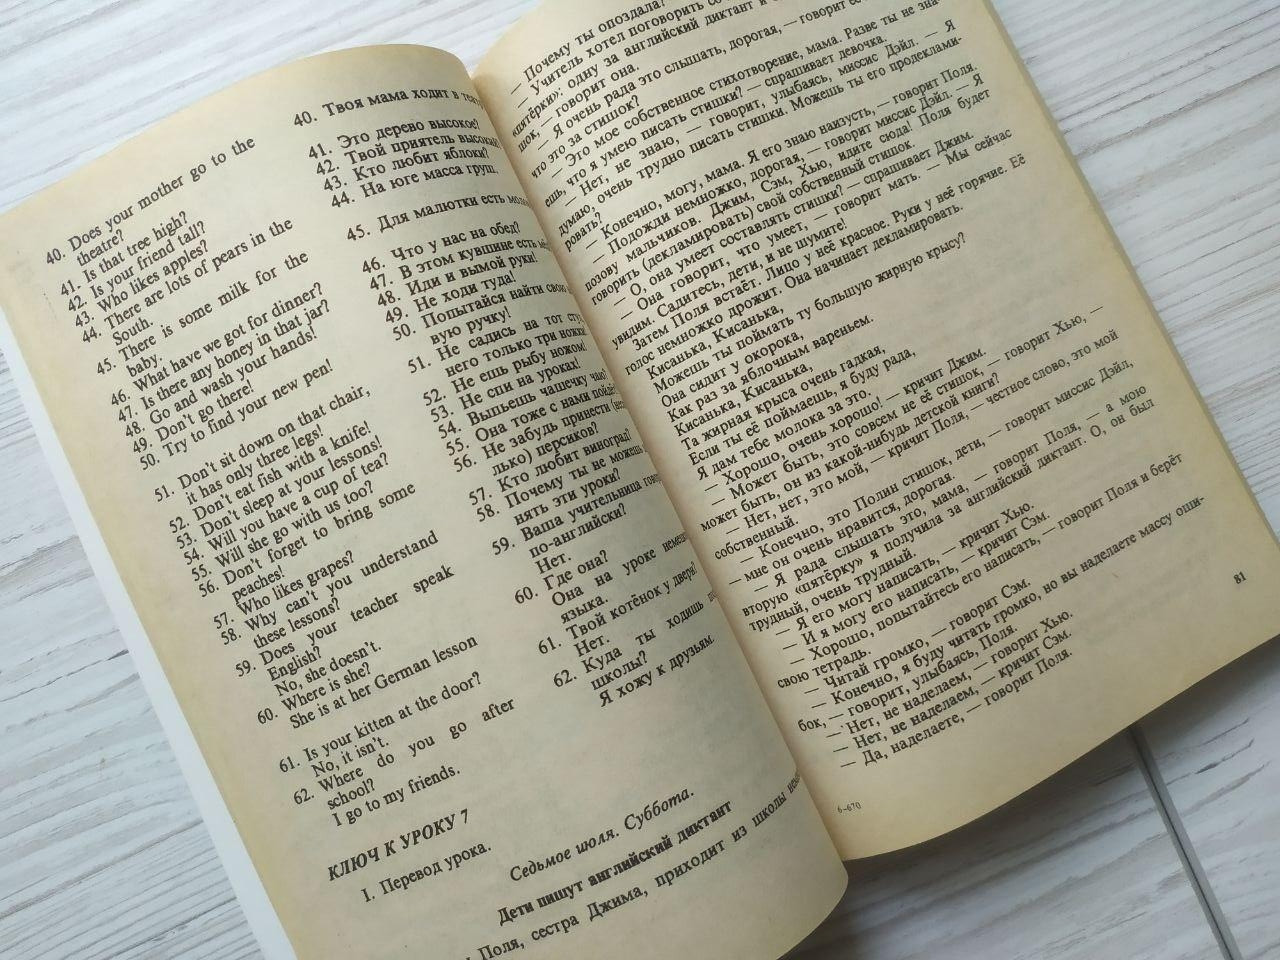 40. Does your mother go to the
theatre?
41. Is that tree high?
42. Is your friend tall?
43. Who likes apples?
44. There are lots of pears in the
South.
45. There is some milk for the
baby.
46. What have we got for dinner?
47. Is there any honey in that jar?
48. Go and wash your hands!
49. Don't go there!
50. Try to find your new pen!
51. Don't sit down on that chair,
it has only three legs!
52. Don't eat fish with a knife!
53. Don't sleep at your lessons!
54. Will you have a cup of tea?
55. Will she go with us too?
56. Don't forget to bring some
peaches!
57. Who likes grapes?
58. Why can't you understand
these lessons?
59. Does your teacher speak
English?
No, she doesn't.
60. Where is she?
She is at her German lesson
61. Is your kitten at the door?
No, it isn't.
62. Where do you go after
school?
I go to my friends.
40. Твоя мама ходит в
41. Это дерево высокое?
42. Твой приятель высокий?
43. Кто любит яблоки?
44. На юге масса груш.
45. Для малютки есть
46. Что у нас на обед?
47. В этом кувшине есть
48. Иди и вымой руки!
49. Не ходи туда!
50. Попытайся найти свою
вую ручку!
51. Не садись на тот
него только три ножки!
52. Не ешь рыбу ножом!
53. Не спи на уроках!
54. Выпьешь чашечку чаю?
55. Она тоже с нами пойдёт?
56. Не забудь принести
лько) персиков?
57. Кто любит виноград?
58. Почему ты не можешь
нять эти уроки?
59. Ваша учительница
по-английски?
Нет.
60. Где она?
Она на уроке
языка.
61. Твой котёнок у двери?
Нет.
62. Куда ты ходишь
школы?
Я хожу к друзьям.
КЛЮЧ К УРОКУ 7
I. Перевод урока.
Седьмое июля. Суббота.
Дети пишут английский диктант
Поля, сестра Джима, приходит из школы
— Почему ты опоздала?
— Учитель хотел поговорить со
«пятёрки»: одну за английский диктант и
шок, — говорит она.
— Я очень рада это слышать, дорогая, — говорит
что это за стишок?
— Это мое собственное стихотворение, мама. Разве ты не зна-
ешь, что я умею писать стишки? — спрашивает девочка.
— Нет, не знаю, — говорит, улыбаясь, миссис Дэйл. — Я
думаю, очень трудно писать стишки. Можешь ты его продеклами-
ровать?
— Конечно, могу, мама. Я его знаю наизусть, — говорит Поля.
— Подожди немножко, дорогая, — говорит миссис Дэйл. — Я
позову мальчиков. Джим, Сэм, Хью, идите сюда! Поля будет
говорить (декламировать) свой собственный стишок.
— О, она умеет составлять стишки? — спрашивает Джим.
— Она говорит, что умеет, — говорит мать. — Мы сейчас
увидим. Садитесь, дети, и не шумите!
Затем Поля встаёт. Лицо у неё красное. Руки у неё горячие. Её
голос немножко дрожит. Она начинает декламировать.
Кисанька, Кисанька,
Можешь ты поймать ту большую жирную крысу?
Она сидит у окорока,
Как раз за яблочным вареньем.
Кисанька, Кисанька,
Та жирная крыса очень гадкая,
Если ты её поймаешь, я буду рада,
Я дам тебе молока за это.
— Хорошо, очень хорошо! — кричит Джим.
— Может быть, это совсем не её стишок, — говорит Хью, —
может быть, он из какой-нибудь детской книги?
— Нет, нет, это мой, — кричит Поля, — честное слово, это мой
собственный.
— Конечно, это Полин стишок, дети, — говорит миссис Дэйл,
— мне он очень нравится, дорогая.
— Я рада слышать это, мама, — говорит Поля, — а мою
вторую «пятёрку» я получила за английский диктант. О, он был
трудный, очень трудный.
— Я его могу написать, — кричит Хью.
— И я могу его написать, — кричит Сэм.
— Хорошо, попытайтесь его написать, — говорит Поля и берёт
свою тетрадь.
— Читай громко, — говорит Сэм.
— Конечно, я буду читать громко, но вы наделаете массу оши-
бок, — говорит, улыбаясь, Поля.
— Нет, не наделаем, — говорит Хью.
— Нет, не наделаем, — кричит Сэм.
— Да, наделаете, — говорит Поля.
6–670
81